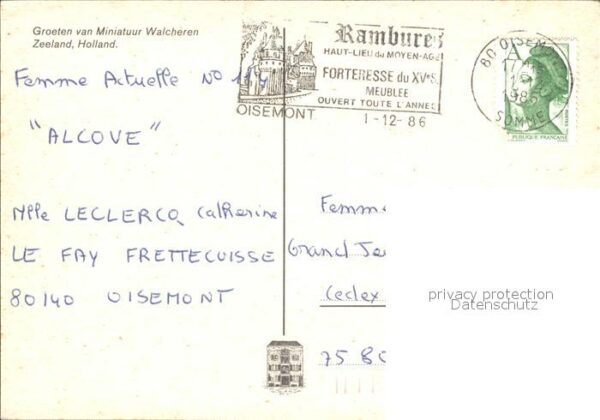 Groeten van Miniatuur Walcheren
Zeeland, Holland.
Rambures
HAUT-LIEU du MOYEN-AGE
FORTERESSE du XVe S.
MEUBLEE
OUVERT TOUTE L'ANNEE
OISEMONT
1-12-86
80 OISEM
SOMME
A
REPUBLIQUE FRANÇAISE
POSTES
Femme Actuelle No
"ALCOVE"
Mlle LECLERCQ Catherine
LE FAY FRETTECUISSE
80140 OISEMONT
Femm
Grand Je
Cedex
75 80
privacy protection
Datenschutz